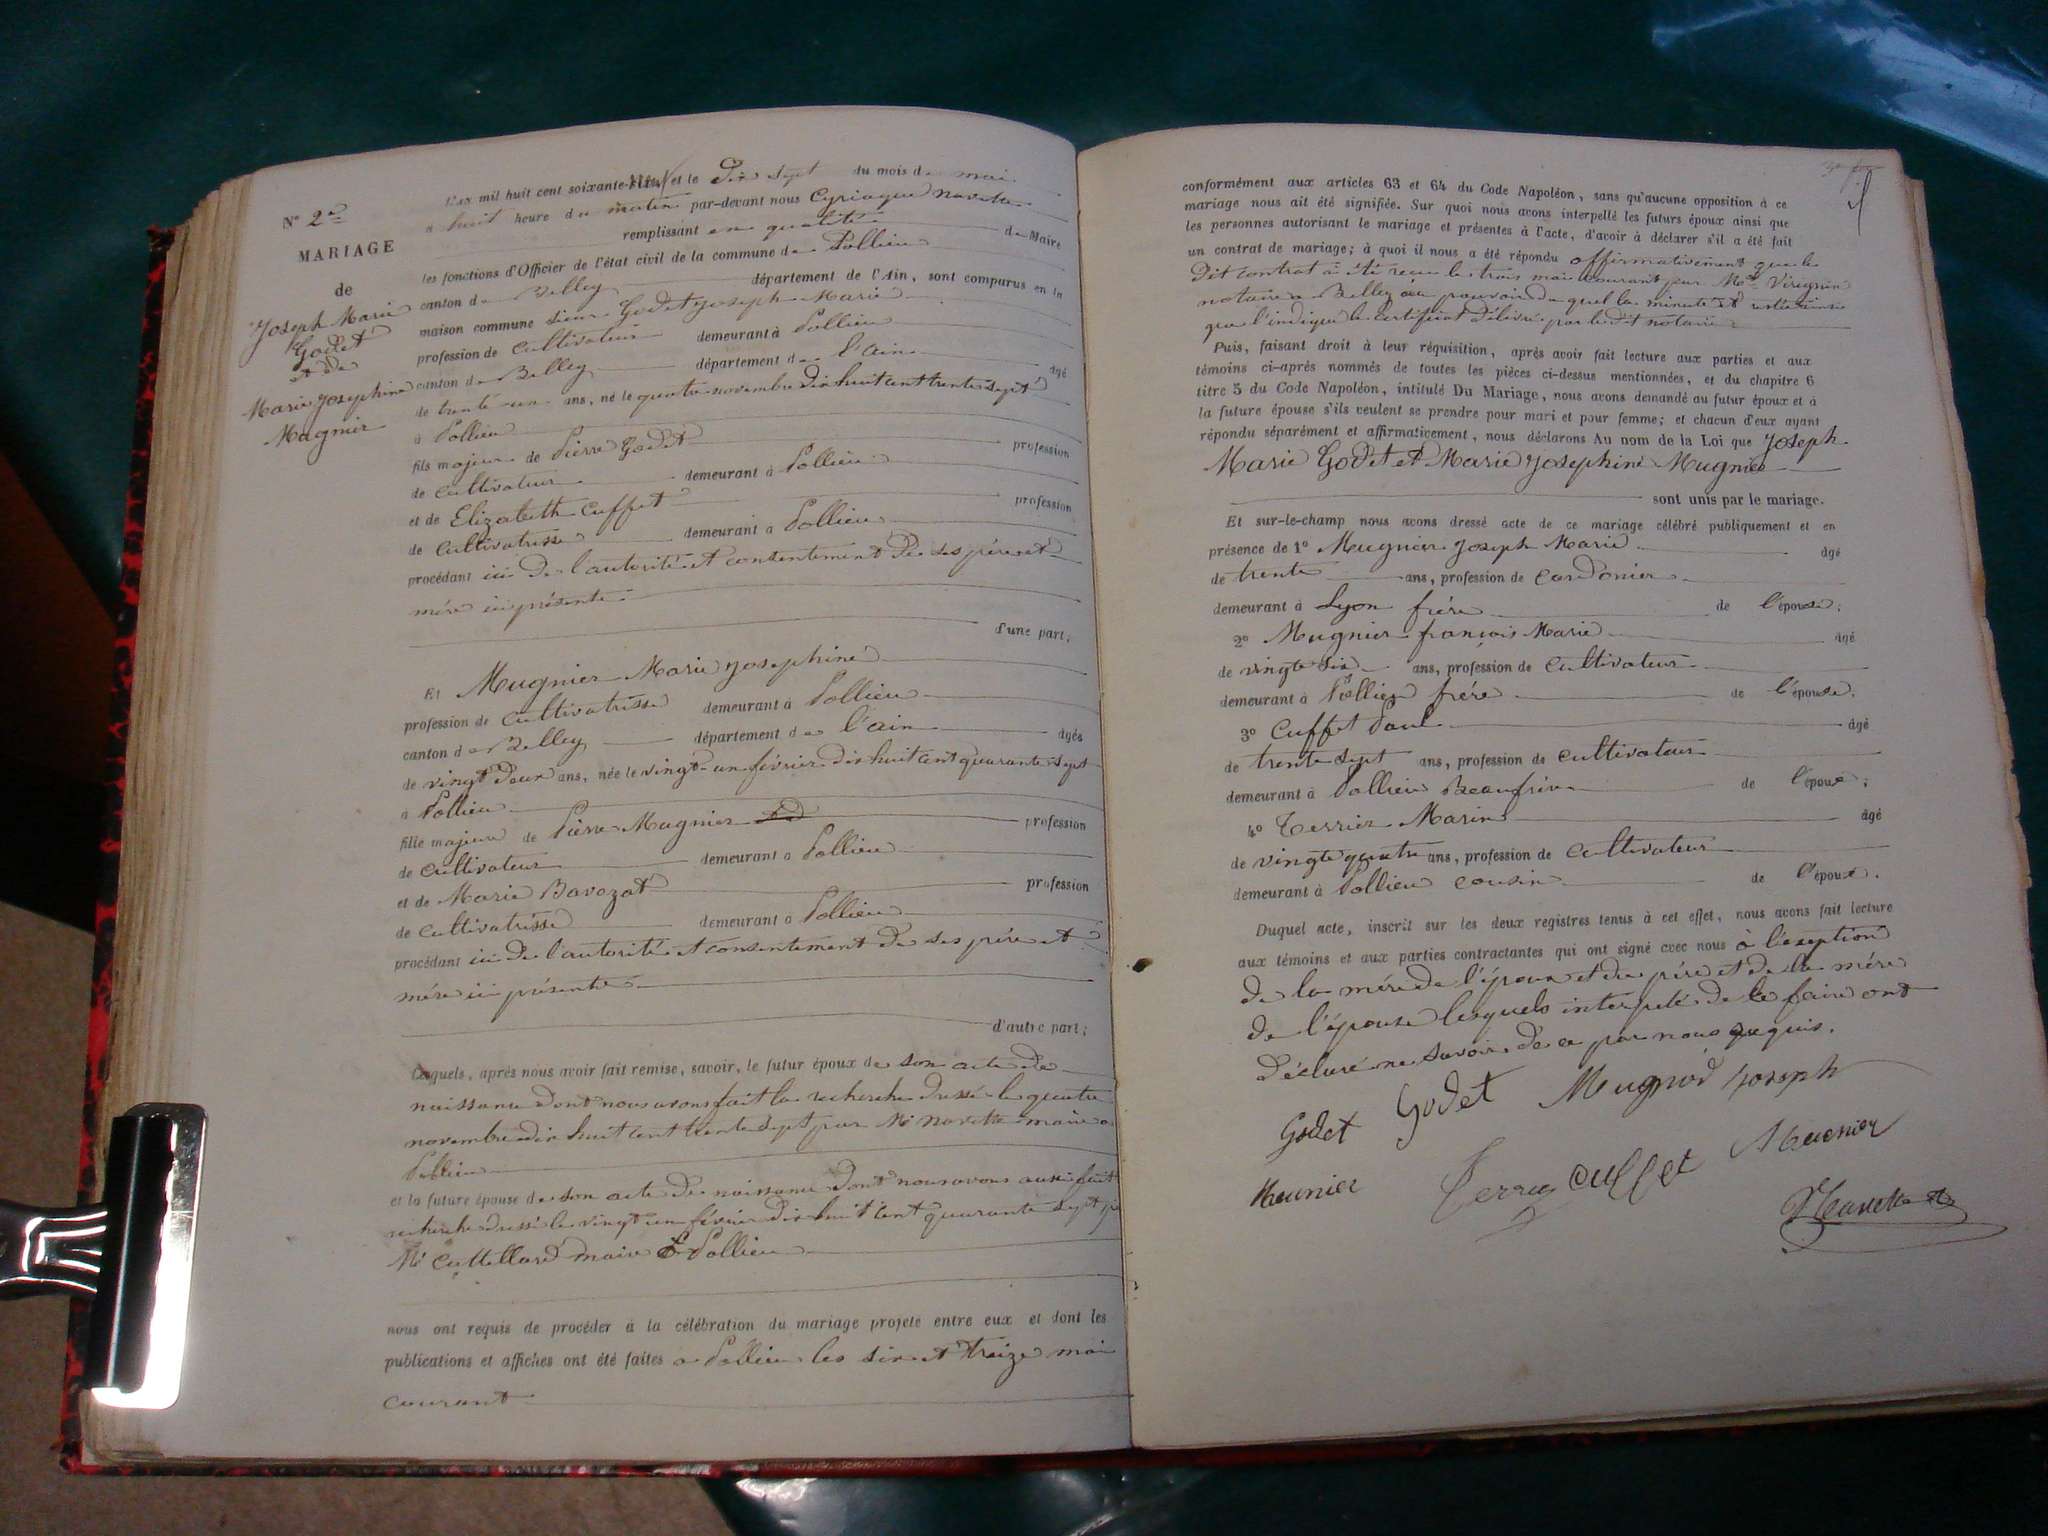 N° 2e
MARIAGE
de
Joseph Marie
Godet
et de
Marie Josephine
Mugnier
L'an mil huit cent soixante-neuf et le Dix sept du mois de mai
à huit heure du matin par-devant nous Cyriaque Navette
remplissant en qualité de Maire
les fonctions d'Officier de l'état civil de la commune de Pollieu
canton de Belley département de l'Ain, sont comparus en la
maison commune sieur Godet Joseph Marie
profession de cultivateur demeurant à Pollieu
canton de Belley département de l'ain âgé
de trente un ans, né le quatre novembre dix huit cent trente sept
à Pollieu
fils majeur de Pierre Godet profession
de cultivateur demeurant à Pollieu
et de Elizabeth Cuffet profession
de cultivatrisse demeurant à Pollieu
procédant ici de l'autorité et consentement de ses père et
mère ici présente
d'une part;
Et Mugnier Marie Josephine
profession de cultivatrisse demeurant à Pollieu
canton de Belley département de l'ain âgés
de vingt deux ans, née le vingt un février dix huit cent quarante sept
à Pollieu
fille majeure de Pierre Mugnier profession
de cultivateur demeurant à Pollieu
et de Marie Bavozat profession
de cultivatrisse demeurant à Pollieu
procédant ici de l'autorité et consentement de ses père et
mère ici présente
d'autre part;
Lesquels, après nous avoir fait remise, savoir, le futur époux de son acte de
naissance dont nous avons fait la recherche dressé le quatre
novembre dix huit cent trente sept par Mr Navette maire a
Pollieu
et la future épouse de son acte de naissance dont nous avons aussi fait
recherche dressé le vingt un février dix huit cent quarante sept p
Mr Cattelard maire Pollieu
nous ont requis de procéder à la célébration du mariage projeté entre eux et dont les
publications et affiches ont été faites a Pollieu les six et treize mai
courant
conformément aux articles 63 et 64 du Code Napoléon, sans qu'aucune opposition à ce
mariage nous ait été signifiée. Sur quoi nous avons interpellé les futurs époux ainsi que
les personnes autorisant le mariage et présentes à l'acte, d'avoir à déclarer s'il a été fait
un contrat de mariage; à quoi il nous a été répondu affirmativement que le
Dit contrat à été reçu le trois mai courant par Me Virignin
notaire a Belley au pouvoir du quel la minute est restée ainsi
que l'indique le certificat délivré par le dit notaire
Puis, faisant droit à leur réquisition, après avoir fait lecture aux parties et aux
témoins ci-après nommés de toutes les pièces ci-dessus mentionnées, et du chapitre 6
titre 5 du Code Napoléon, intitulé Du Mariage, nous avons demandé au futur époux et à
la future épouse s'ils veulent se prendre pour mari et pour femme; et chacun d'eux ayant
répondu séparément et affirmativement, nous déclarons Au nom de la Loi que Joseph
Marie Godet et Marie Josephine Mugnier
sont unis par le mariage.
Et sur-le-champ nous avons dressé acte de ce mariage célébré publiquement et en
présence de 1° Mugnier Joseph Marie âgé
de trente ans, profession de cordonier
demeurant à Lyon frére de l'épouse;
2° Mugnier françois Marie âgé
de vingte six ans, profession de cultivateur
demeurant à Pollieu frére de l'épouse.
3° Cuffet Paul âgé
de trente sept ans, profession de cultivateur
demeurant à Pollieu Beaufrère de l'époux;
4° Terrier Marin âgé
de vingte quatre ans, profession de cultivateur
demeurant à Pollieu cousin de l'époux.
Duquel acte, inscrit sur les deux registres tenus à cet effet, nous avons fait lecture
aux témoins et aux parties contractantes qui ont signé avec nous à l'éseption
de la mére de l'époux et du pére et de la mére
de l'épouse lesquels interpelé de le faire ont
déclaré ne savoir de ce par nous requis.
Godet Godet Mugnier Joseph
Meunier Terrier Cuffet Meunier
Navette